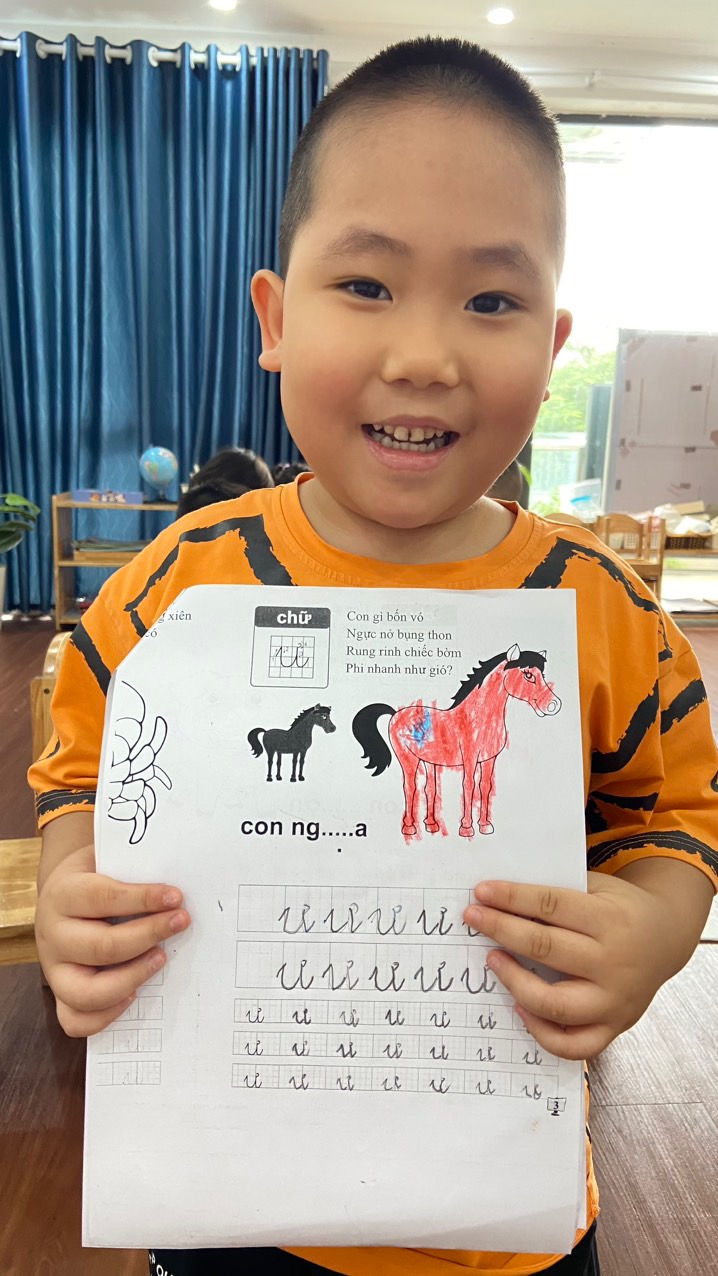 xiên
có
chữ
ư
Con gì bốn vó
Ngực nở bụng thon
Rung rinh chiếc bờm
Phi nhanh như gió?
con ng.....a
.
ư ư ư ư
ư ư ư ư ư
ư ư ư ư ư ư
ư ư ư ư ư ư ư
ư ư ư ư ư ư ư
3